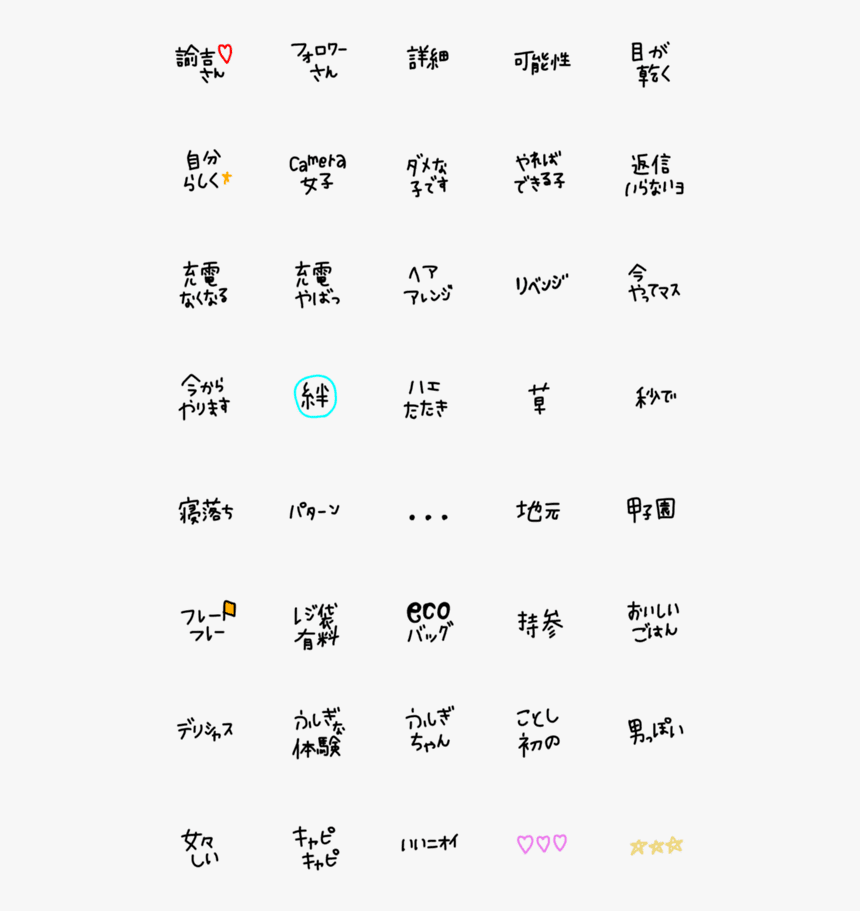 諭吉♡
さん
フォロワー
さん
詳細
可能性
目が
乾く
自分
らしく
Camera
女子
ダメな
子です
やれば
できる子
返信
いらないョ
充電
なくなる
充電
やばっ
ヘア
アレンジ
リベンジ
今
やってマス
今から
やります
絆
ハエ
たたき
草
秒で
寝落ち
パターン
...
地元
甲子園
フレー
フレー
レジ袋
有料
eco
バッグ
持参
おいしい
ごはん
デリシャス
ふしぎな
体験
ふしぎ
ちゃん
ことし
初の
男っぽい
女々
しい
キャピ
キャピ
いいニオイ
♡♡♡
☆☆☆